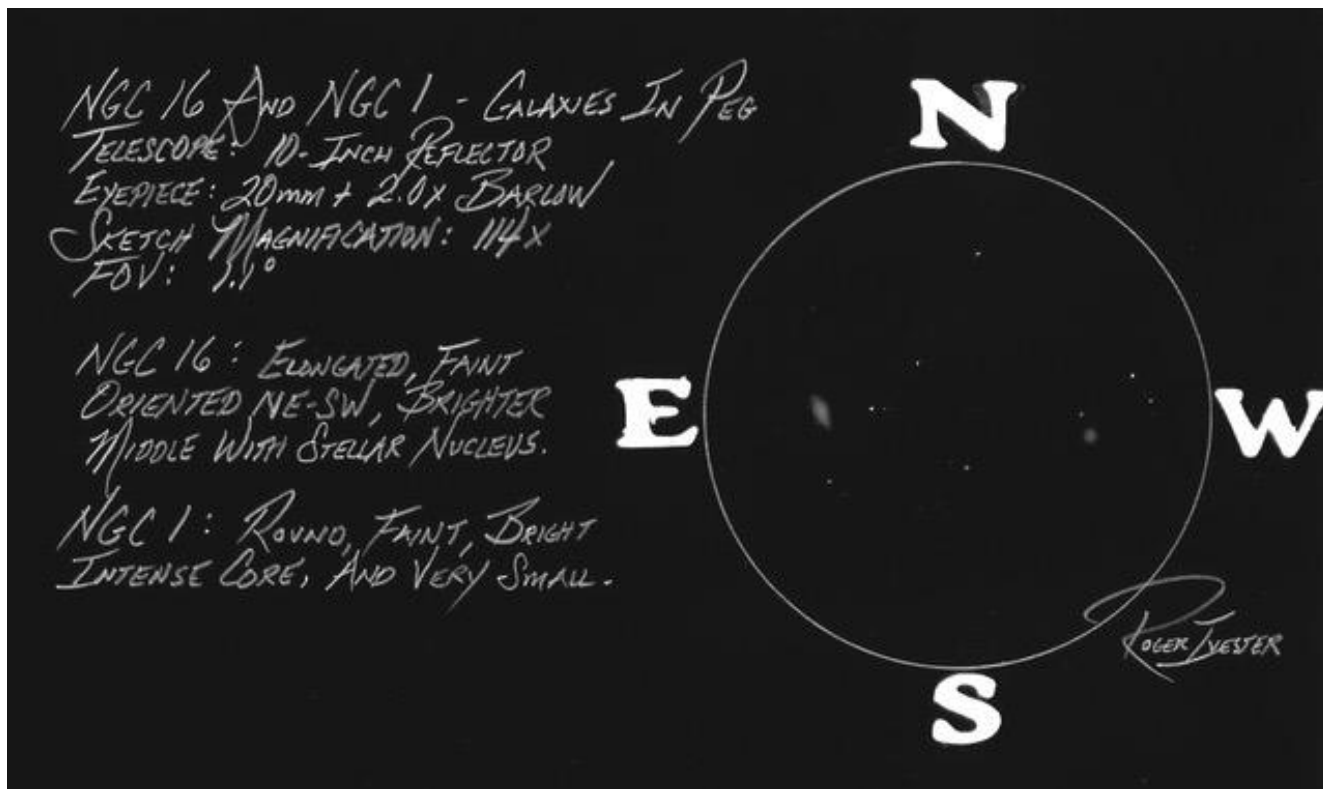 NGC 16 AND NGC 1 - GALAXIES IN PEG
TELESCOPE: 10-INCH REFLECTOR
EYEPIECE: 20mm + 2.0x BARLOW
SKETCH MAGNIFICATION: 114x
FOV: 1.1°
NGC 16: ELONGATED, FAINT
ORIENTED NE-SW, BRIGHTER
MIDDLE WITH STELLAR NUCLEUS.
NGC 1: ROUND, FAINT, BRIGHT
INTENSE CORE, AND VERY SMALL.
N
E
W
S
ROGER IVESTER